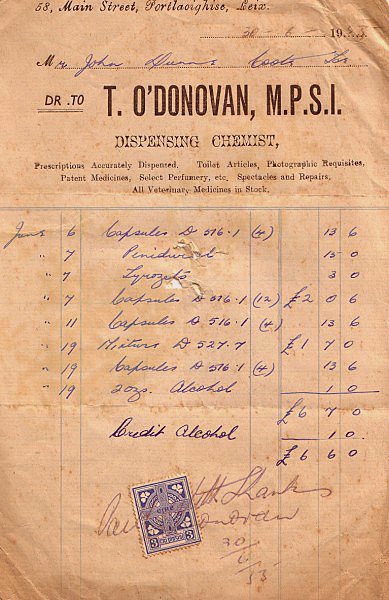 58, Main Street, Portlaoighise, Leix.
30 - 6 - 1955
Mr John Dunne Coote
DR. TO T. O'DONOVAN, M.P.S.I.
DISPENSING CHEMIST,
Prescriptions Accurately Dispensed. Toilet Articles, Photographic Requisites,
Patent Medicines, Select Perfumery, etc. Spectacles and Repairs,
All Veterinary Medicines in Stock.
June 6 Capsules D 516.1 (4) 13 6
" 7 Penidural 15 0
" 7 Tyrozets 3 0
" 7 Capsules D 516.1 (12) £2 0 6
" 11 Capsules D 516.1 (4) 13 6
" 19 Mixture D 527.7 £1 7 0
" 19 Capsules D 516.1 (4) 13 6
" 19 2 ozs. Alcohol 1 0
£6 7 0
Credit Alcohol 1 0
£6 6 0
Paid with Thanks
O'Donovan
30/6/55
EIRE
3 3